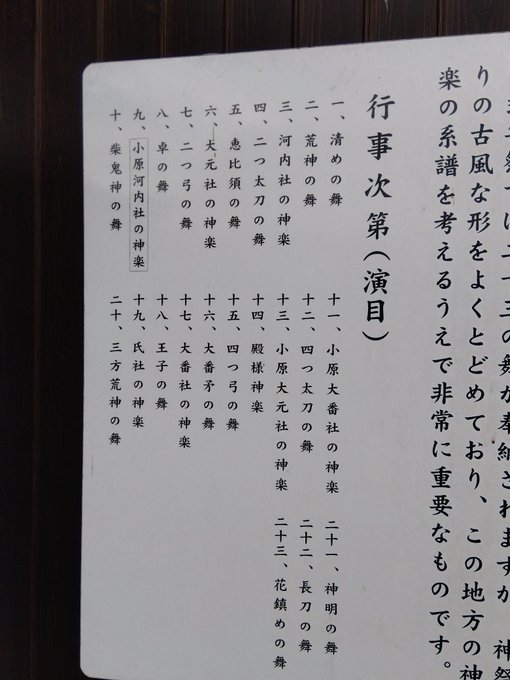 では二十三の舞が奉納されますが、神祭
りの古風な形をよくとどめており、この地方の神
楽の系譜を考えるうえで非常に重要なものです。
行事次第(演目)
一、清めの舞
二、荒神の舞
三、河内社の神楽
四、二つ太刀の舞
五、恵比須の舞
六、大元社の神楽
七、二つ弓の舞
八、卓の舞
九、小原河内社の神楽
十、柴鬼神の舞
十一、小原大番社の神楽
十二、四つ太刀の舞
十三、小原大元社の神楽
十四、殿様神楽
十五、四つ弓の舞
十六、大番矛の舞
十七、大番社の神楽
十八、王子の舞
十九、氏社の神楽
二十、三方荒神の舞
二十一、神明の舞
二十二、長刀の舞
二十三、花鎮めの舞